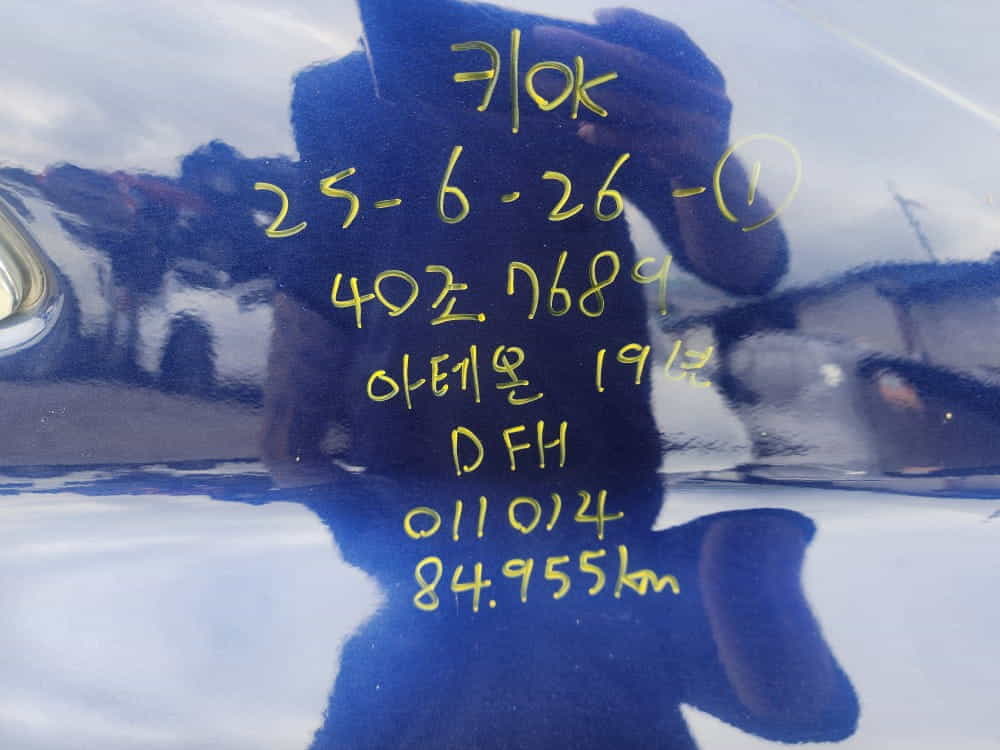 키OK
25-6-26-①
40조 7689
아테온 19년
DFH
011014
84.955km